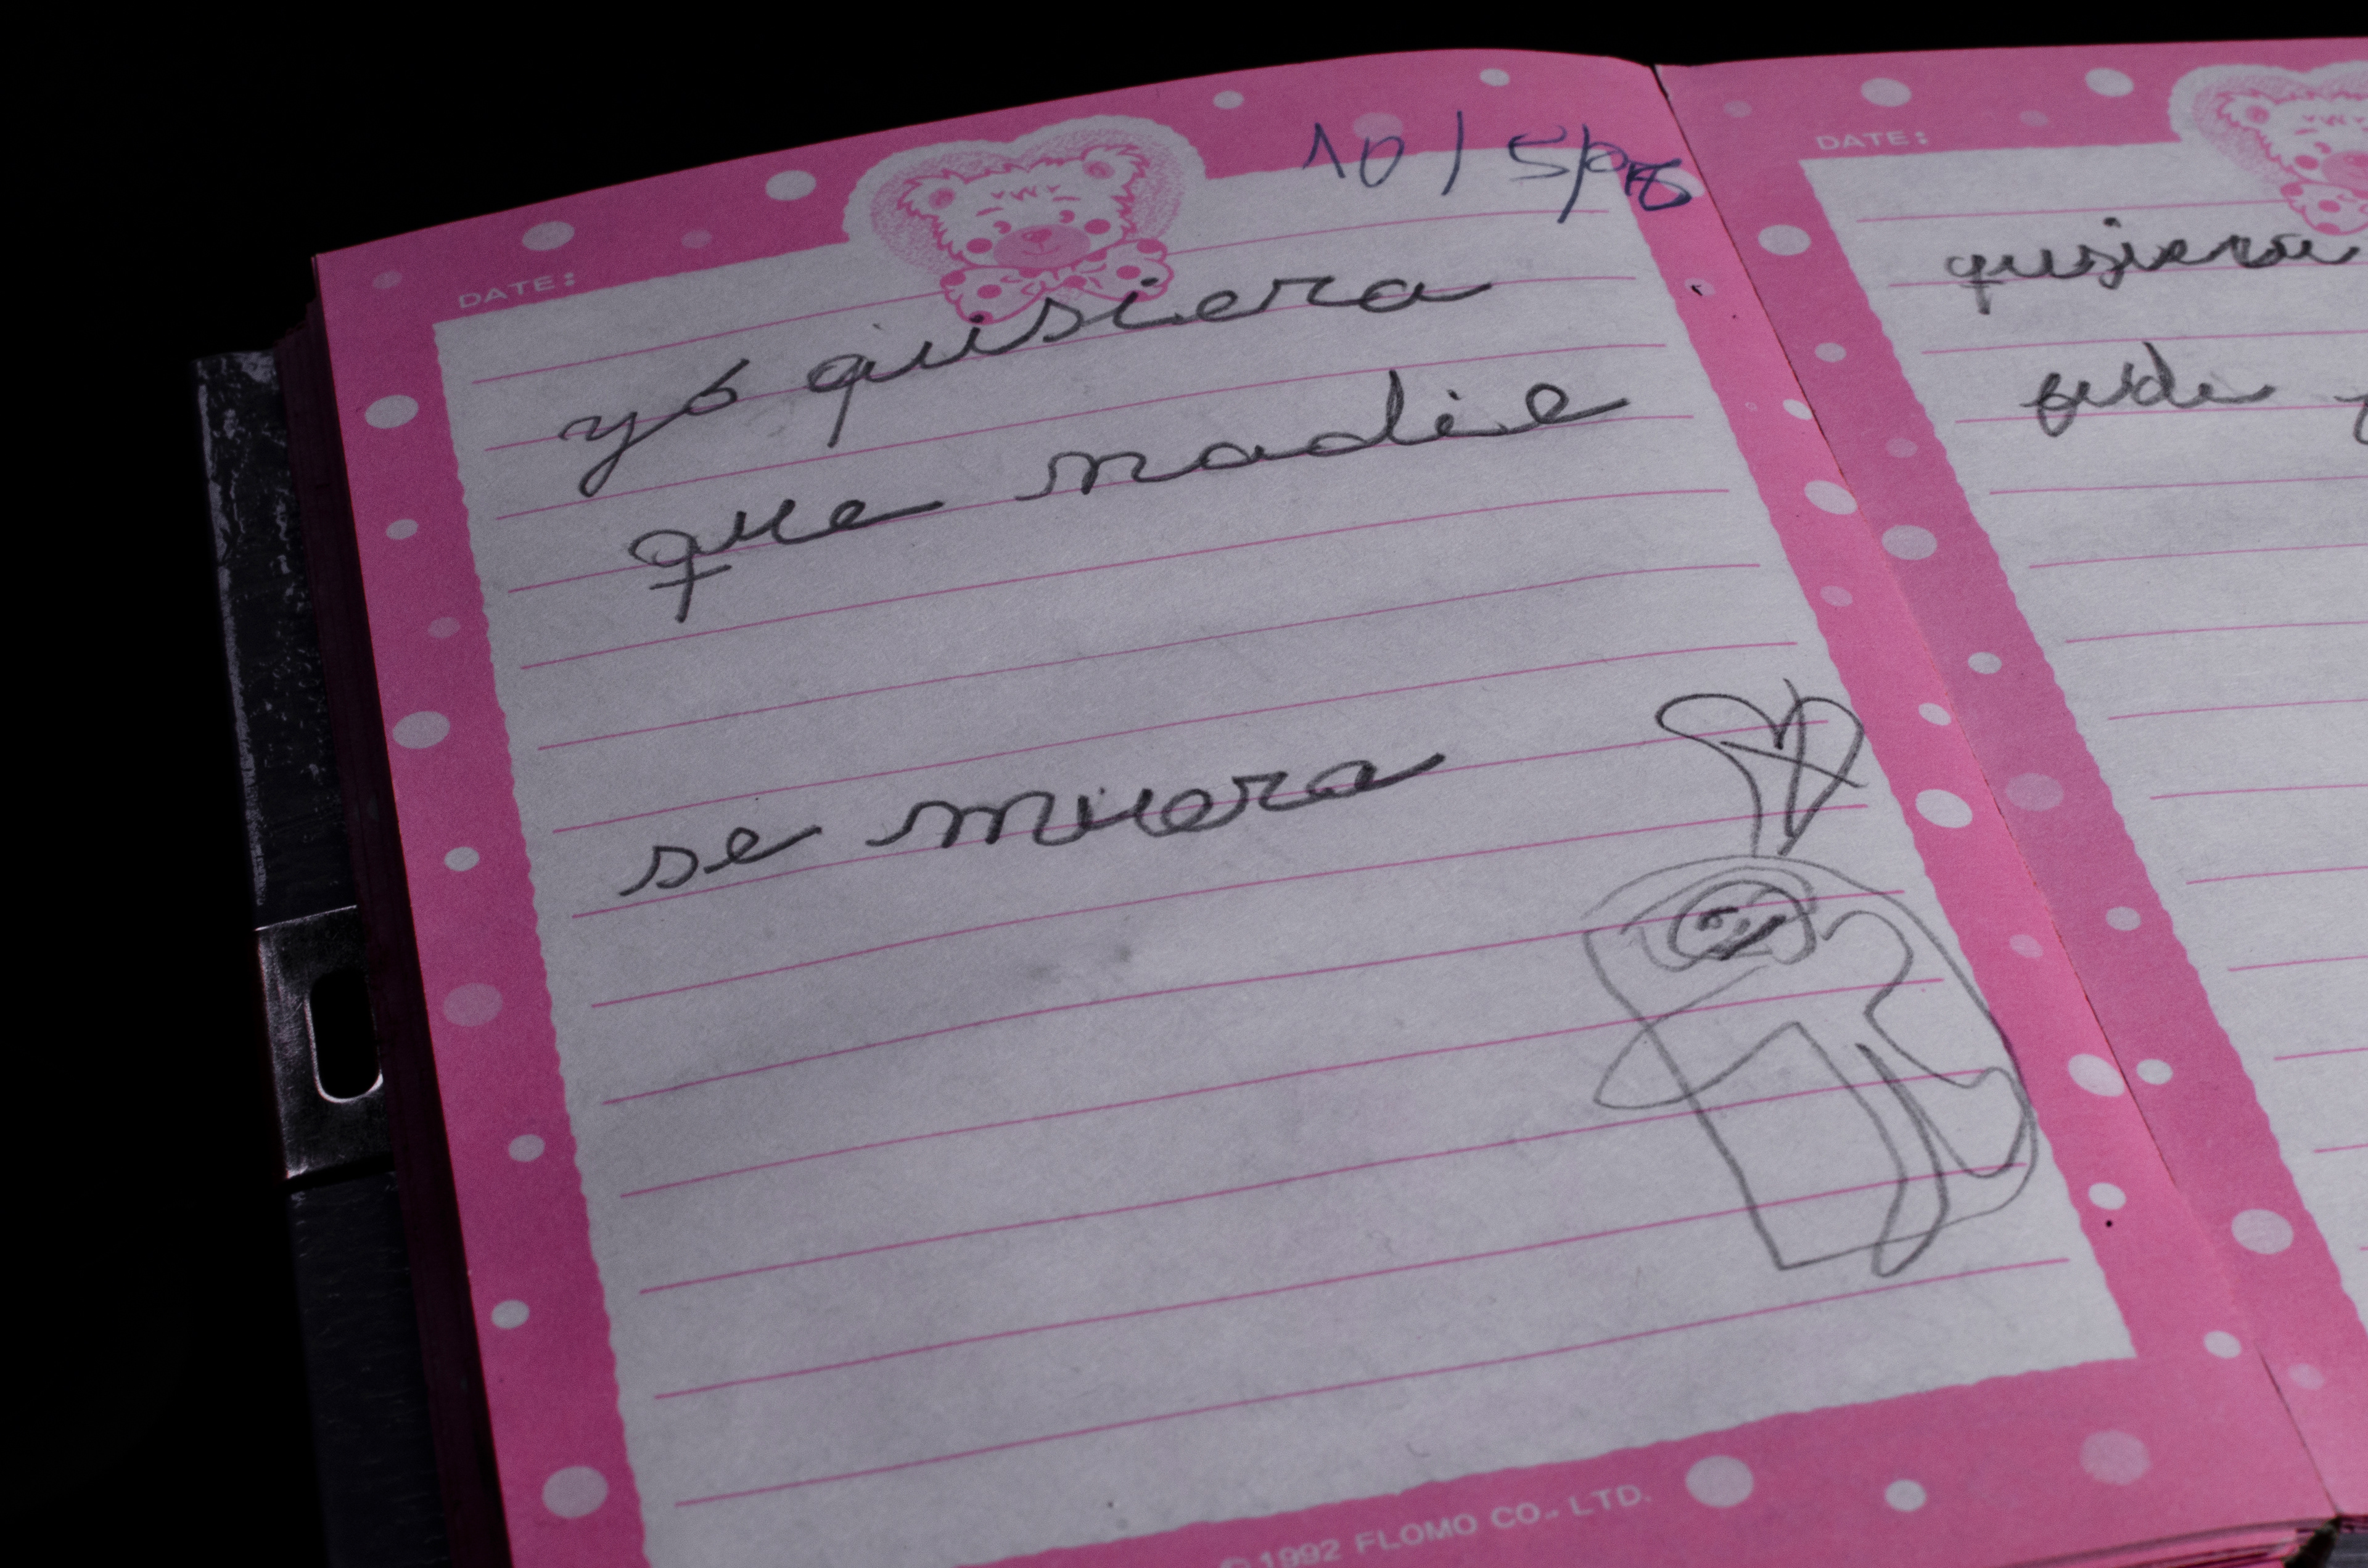 DATE:
10/5/98
yó quisiera
que nadie
se muera
© 1992 FLOMO CO., LTD.
DATE:
quisiera